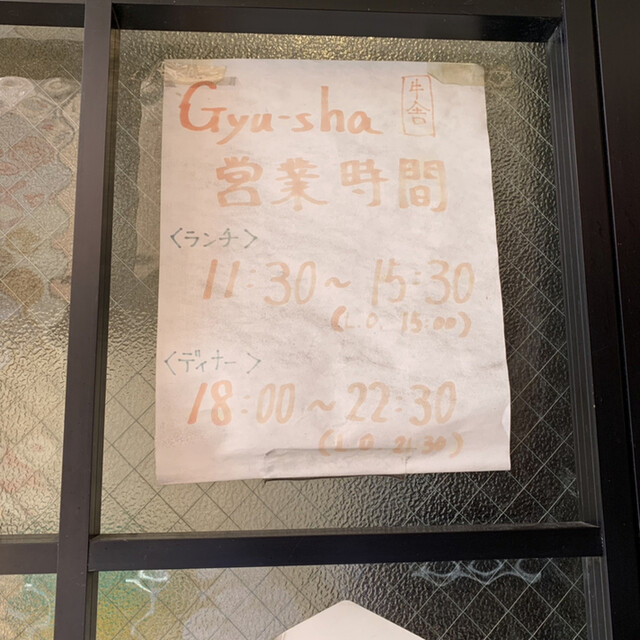 Gyu-sha 牛舎
営業時間
〈ランチ〉
11:30~15:30
(L.O. 15:00)
〈ディナー〉
18:00~22:30
(L.O 21:30)